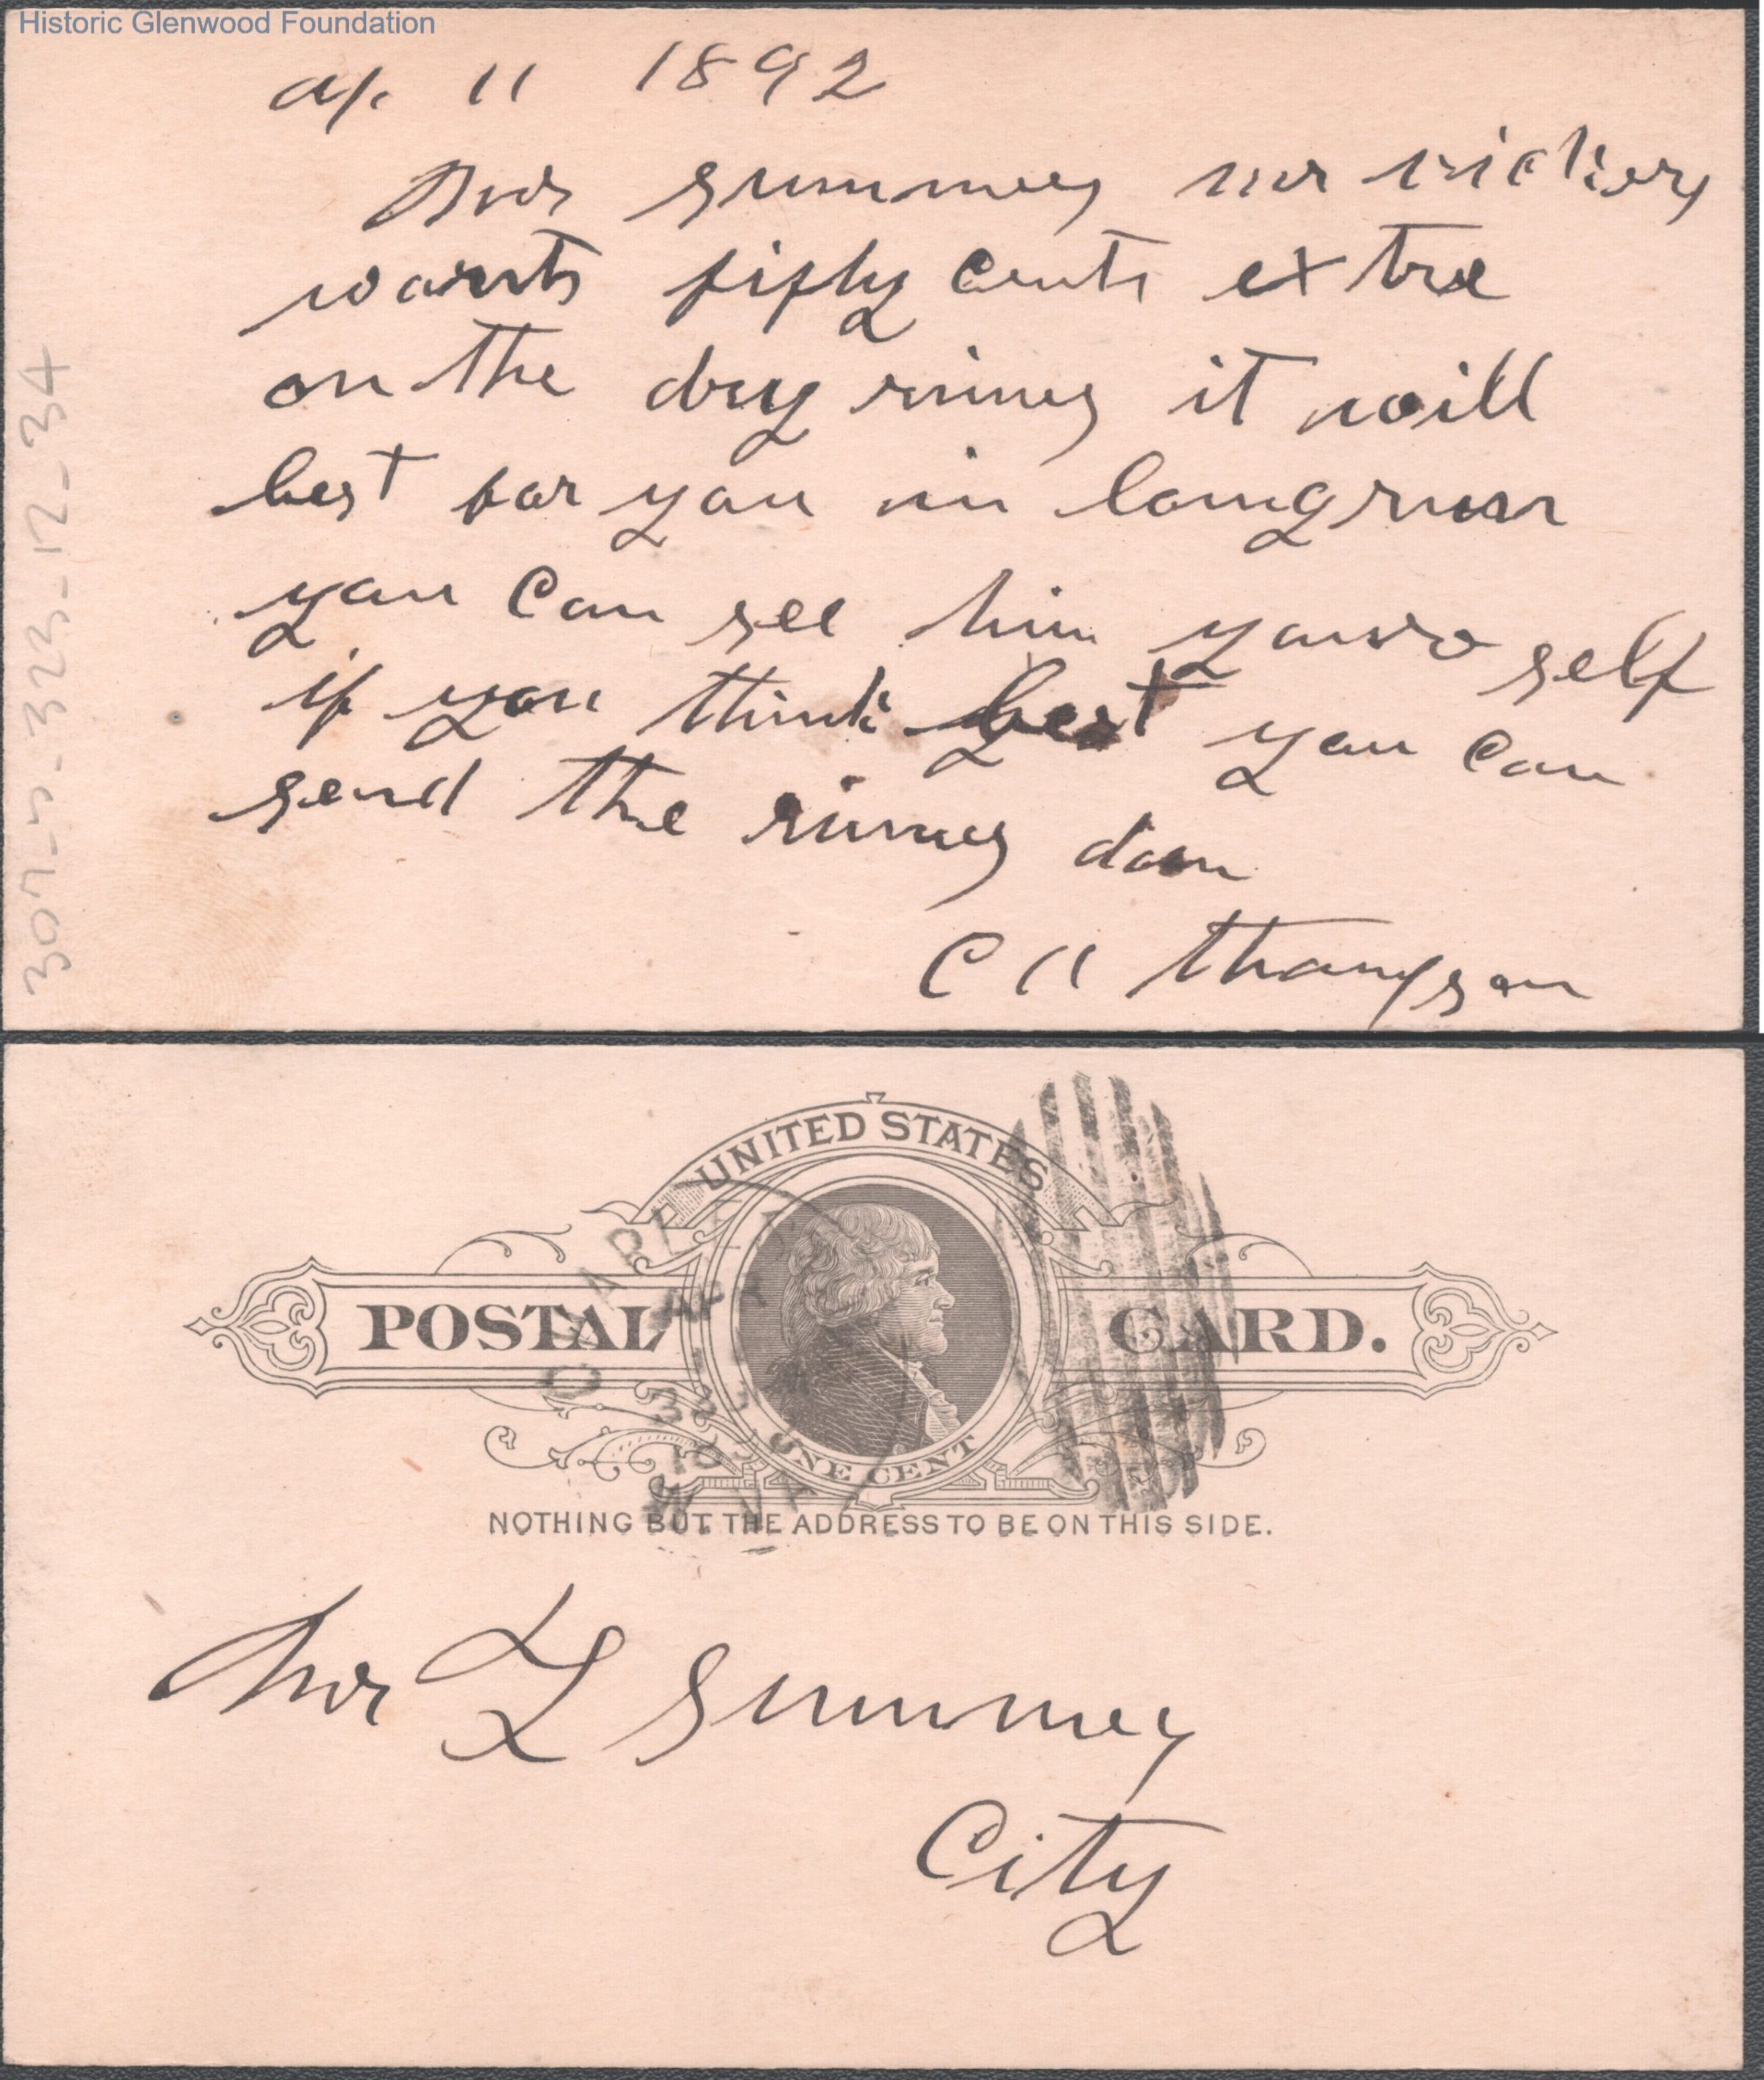 Historic Glenwood Foundation
Ap. 11 1892
Mr Summey mr
wants fifty cents extra
on the dry it will
best for you in long run
you can see him youro self
if you think best you can
send the down
C H Thompson
307-5-323-12-34
UNITED STATES
POSTAL CARD.
ONE CENT
NOTHING BUT THE ADDRESS TO BE ON THIS SIDE.
Mr L Summey
City